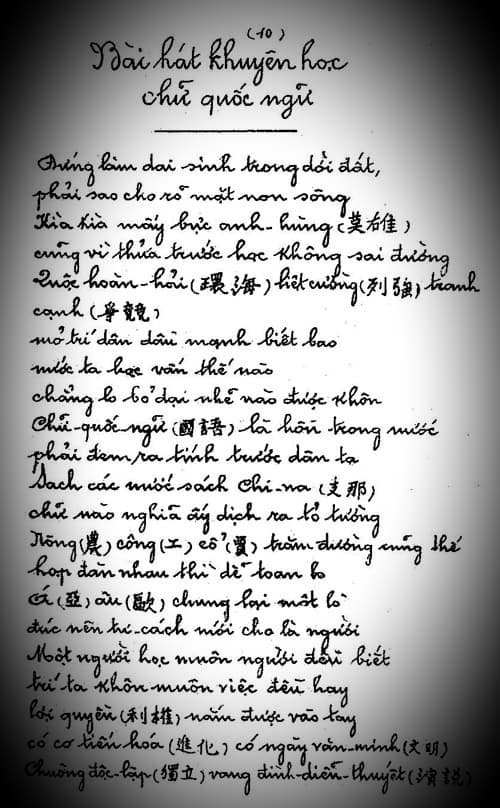 (10)
Bài hát khuyên học
chữ quốc ngữ
Đứng làm dai sinh trong dời đất,
phải sao cho rõ mặt non sông
Kìa Kìa mấy bực anh-hùng (英雄)
cũng vì thửa trước học không sai đường
Quộc hoàn-hải (環海) liệt cường (列強) tranh
cạnh (爭競)
mở trí dân dầu mạnh biết bao
nước ta học vấn thế nào
chẳng lo bỏ dại nhẽ nào được khôn
Chữ-quốc-ngữ (國語) là hồn trong nước
phải đem ra tính trước dân ta
Sach các nước sách Chi-na (支那)
chữ nào nghĩa ấy dịch ra tỏ tường
Nông (農) công (工) cổ (賈) trăm đường cũng thế
họp đàn nhau thì dễ toan lo
Á (亞) âu (歐) chung lại một lò
đúc nên tư-cách mới cho là người
Một người học muôn người đều biết
trí ta khôn muôn việc đều hay
lợi quyền (利權) nắm được vào tay
có cơ tiến hóa (進化) có ngày văn-minh (文明)
Chuông độc-lập (獨立) vang đình-diễn-thuyết (演説)